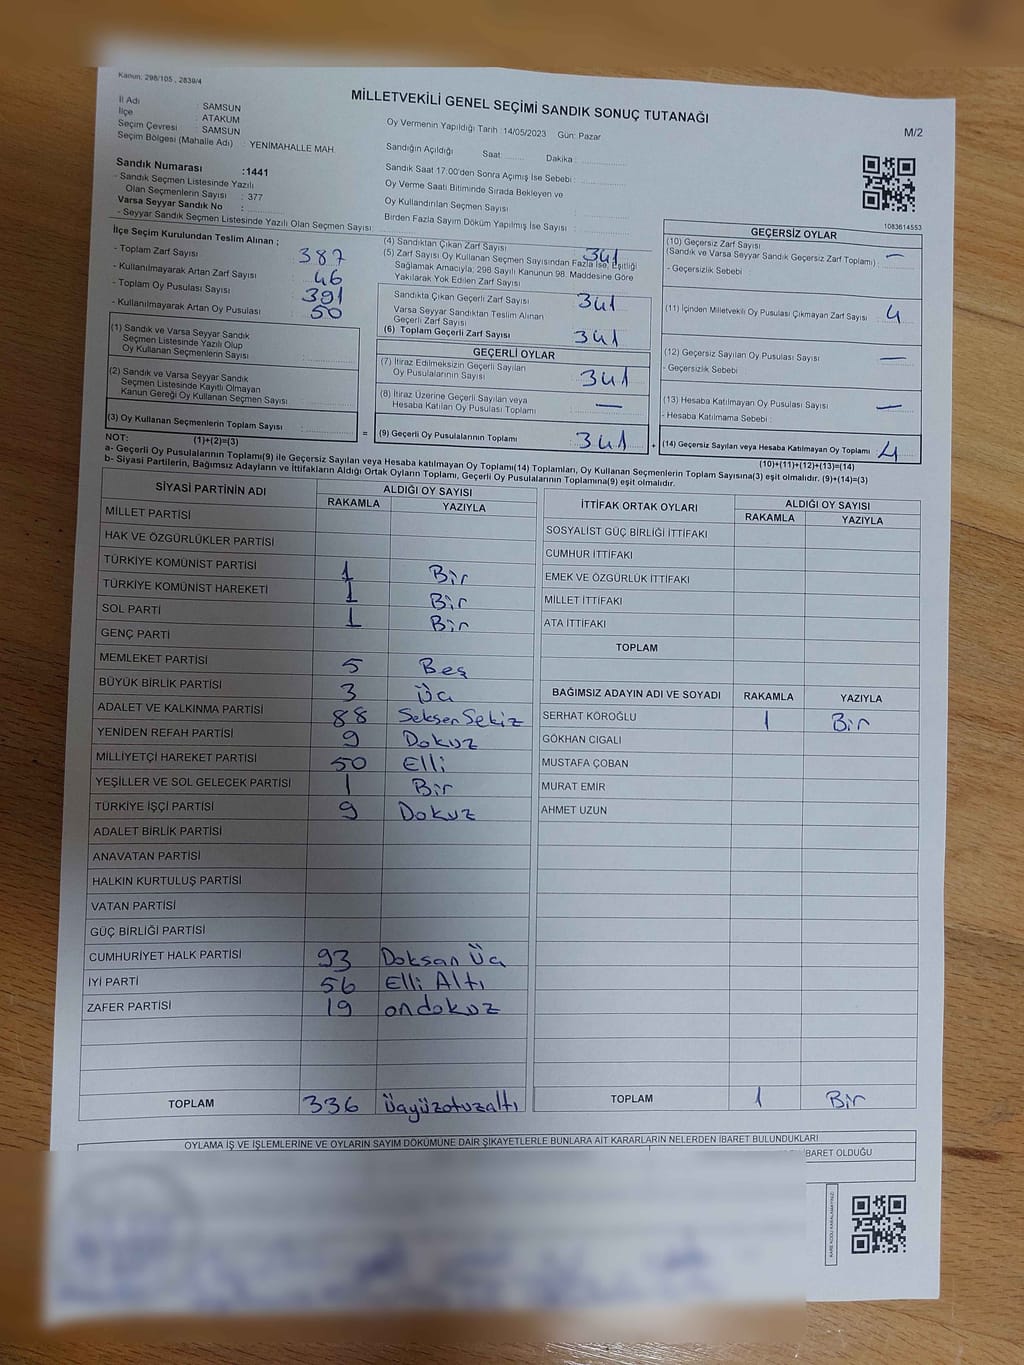 Kanun: 298/105 , 2839/4
MİLLETVEKİLİ GENEL SEÇİMİ SANDIK SONUÇ TUTANAĞI
M/2
İl Adı : SAMSUN
İlçe : ATAKUM
Seçim Çevresi : SAMSUN
Seçim Bölgesi (Mahalle Adı) : YENİMAHALLE MAH.
Sandık Numarası :1441
- Sandık Seçmen Listesinde Yazılı
Olan Seçmenlerin Sayısı : 377
Varsa Seyyar Sandık No :
- Seyyar Sandık Seçmen Listesinde Yazılı Olan Seçmen Sayısı:
Oy Vermenin Yapıldığı Tarih : 14/05/2023 Gün: Pazar
Sandığın Açıldığı Saat: Dakika :
Sandık Saat 17.00'den Sonra Açımış İse Sebebi :
Oy Verme Saati Bitiminde Sırada Bekleyen ve
Oy Kullandırılan Seçmen Sayısı :
Birden Fazla Sayım Döküm Yapılmış İse Sayısı :
1083614553
İlçe Seçim Kurulundan Teslim Alınan ;
- Toplam Zarf Sayısı : 387
- Kullanılmayarak Artan Zarf Sayısı : 46
- Toplam Oy Pusulası Sayısı : 391
- Kullanılmayarak Artan Oy Pusulası : 50
(1) Sandık ve Varsa Seyyar Sandık
Seçmen Listesinde Yazılı Olup
Oy Kullanan Seçmenlerin Sayısı :
(2) Sandık ve Varsa Seyyar Sandık
Seçmen Listesinde Kayıtlı Olmayan
Kanun Gereği Oy Kullanan Seçmen Sayısı :
(3) Oy Kullanan Seçmenlerin Toplam Sayısı :
(1)+(2)=(3)
(4) Sandıktan Çıkan Zarf Sayısı : 341
(5) Zarf Sayısı Oy Kullanan Seçmen Sayısından Fazla İse, Eşitliği
Sağlamak Amacıyla; 298 Sayılı Kanunun 98. Maddesine Göre
Yakılarak Yok Edilen Zarf Sayısı
Sandıkta Çıkan Geçerli Zarf Sayısı 341
Varsa Seyyar Sandıktan Teslim Alınan
Geçerli Zarf Sayısı
(6) Toplam Geçerli Zarf Sayısı 341
GEÇERLİ OYLAR
(7) İtiraz Edilmeksizin Geçerli Sayılan
Oy Pusulalarının Sayısı : 341
(8) İtiraz Üzerine Geçerli Sayılan veya
Hesaba Katılan Oy Pusulası Toplamı : —
= (9) Geçerli Oy Pusulalarının Toplamı : 341 +
GEÇERSİZ OYLAR
(10) Geçersiz Zarf Sayısı
(Sandık ve Varsa Seyyar Sandık Geçersiz Zarf Toplamı) : —
- Geçersizlik Sebebi :
(11) İçinden Milletvekili Oy Pusulası Çıkmayan Zarf Sayısı : 4
(12) Geçersiz Sayılan Oy Pusulası Sayısı : —
- Geçersizlik Sebebi
(13) Hesaba Katılmayan Oy Pusulası Sayısı : —
- Hesaba Katılmama Sebebi :
(14) Geçersiz Sayılan veya Hesaba Katılmayan Oy Toplamı : 4
(10)+(11)+(12)+(13)=(14)
NOT:
a- Geçerli Oy Pusulalarının Toplamı(9) ile Geçersiz Sayılan veya Hesaba katılmayan Oy Toplamı(14) Toplamları, Oy Kullanan Seçmenlerin Toplam Sayısına(3) eşit olmalıdır. (9)+(14)=(3)
b- Siyasi Partilerin, Bağımsız Adayların ve İttifakların Aldığı Ortak Oyların Toplamı, Geçerli Oy Pusulalarının Toplamına(9) eşit olmalıdır.
SİYASİ PARTİNİN ADI ALDIĞI OY SAYISI
RAKAMLA YAZIYLA
MİLLET PARTİSİ
HAK VE ÖZGÜRLÜKLER PARTİSİ
TÜRKİYE KOMÜNİST PARTİSİ 1 Bir
TÜRKİYE KOMÜNİST HAREKETİ 1 Bir
SOL PARTİ 1 Bir
GENÇ PARTİ
MEMLEKET PARTİSİ 5 Beş
BÜYÜK BİRLİK PARTİSİ 3 Üç
ADALET VE KALKINMA PARTİSİ 88 Seksen Sekiz
YENİDEN REFAH PARTİSİ 9 Dokuz
MİLLİYETÇİ HAREKET PARTİSİ 50 Elli
YEŞİLLER VE SOL GELECEK PARTİSİ 1 Bir
TÜRKİYE İŞÇİ PARTİSİ 9 Dokuz
ADALET BİRLİK PARTİSİ
ANAVATAN PARTİSİ
HALKIN KURTULUŞ PARTİSİ
VATAN PARTİSİ
GÜÇ BİRLİĞİ PARTİSİ
CUMHURİYET HALK PARTİSİ 93 Doksan Üç
İYİ PARTİ 56 Elli Altı
ZAFER PARTİSİ 19 ondokuz
TOPLAM 336 Üçyüzotuzaltı
İTTİFAK ORTAK OYLARI ALDIĞI OY SAYISI
RAKAMLA YAZIYLA
SOSYALİST GÜÇ BİRLİĞİ İTTİFAKI
CUMHUR İTTİFAKI
EMEK VE ÖZGÜRLÜK İTTİFAKI
MİLLET İTTİFAKI
ATA İTTİFAKI
TOPLAM
BAĞIMSIZ ADAYIN ADI VE SOYADI RAKAMLA YAZIYLA
SERHAT KÖROĞLU 1 Bir
GÖKHAN CIGALI
MUSTAFA ÇOBAN
MURAT EMİR
AHMET UZUN
TOPLAM 1 Bir
OYLAMA İŞ VE İŞLEMLERİNE VE OYLARIN SAYIM DÖKÜMÜNE DAİR ŞİKAYETLERLE BUNLARA AİT KARARLARIN NELERDEN İBARET BULUNDUKLARI
BARET OLDUĞU
KARE KODU KARALAMAYINIZ!